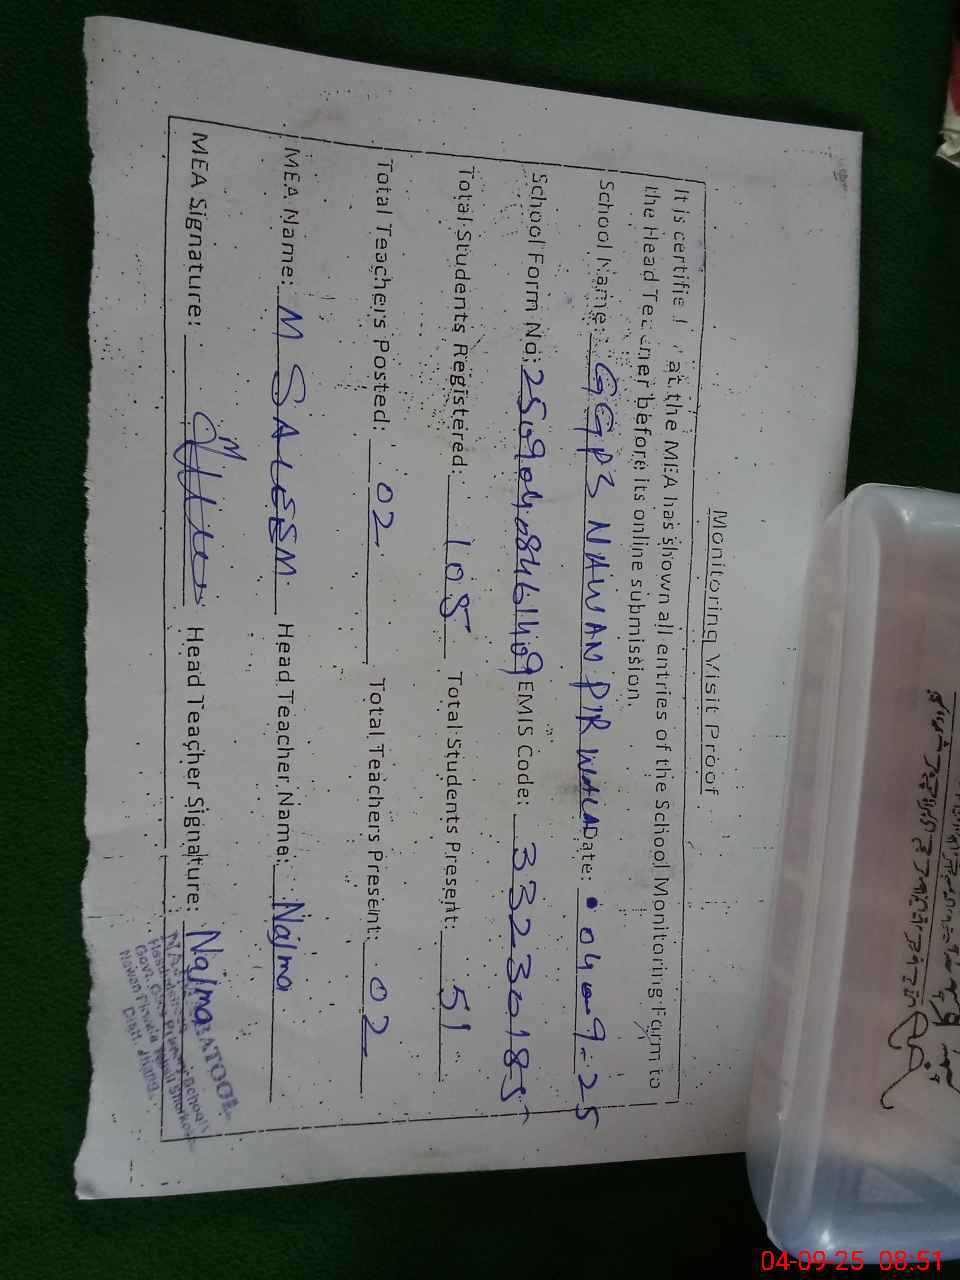 Monitoring Visit Proof
It is certified that the MEA has shown all entries of the School Monitoring Form to
the Head Teacher before its online submission.
School Name: GGPS NAWAN PIR WALA Date: 04-09-25
School Form No: EMIS Code: 33230185
Total Students Registered: 105 Total Students Present: 51
Total Teachers Posted: 02 Total Teachers Present: 02
MEA Name: M SALEEM Head Teacher Name: Najma
MEA Signature: Head Teacher Signature: Najma
BATOOL
Headmistress
Govt. Girls Primary School
Distt. Jhang
04-09-25 08:51